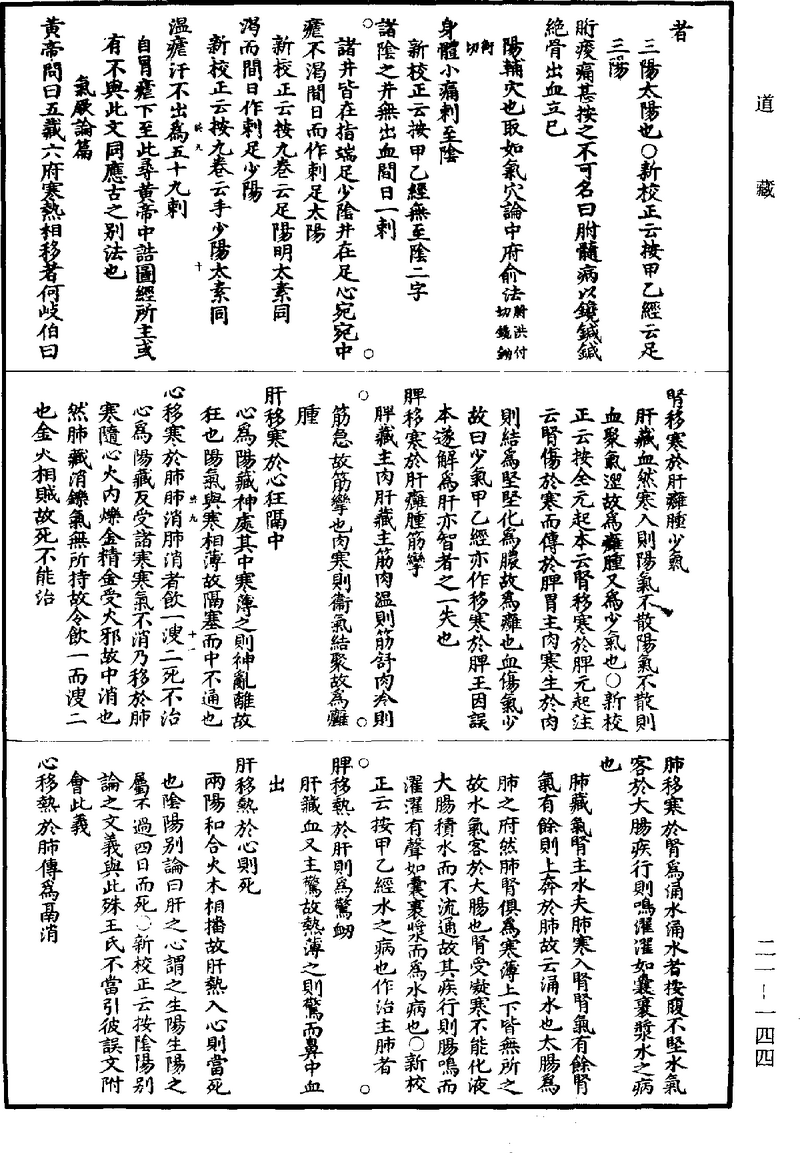 道藏
者
三陽太陽也○新校正云按甲乙經云足
三陽
䯒痠痛甚按之不可名曰胕髓病以鑱鍼鍼
絕骨出血立已
陽輔穴也取如氣穴論中府俞法
身體小痛刺至陰
新校正云按甲乙經無至陰二字
諸陰之井無出血間日一刺
諸井皆在指端足少陰井在足心宛宛中
瘧不渴間日而作刺足太陽
新校正云按九卷云足陽明太素同
渴而間日作刺足少陽
新校正云按九卷云手少陽太素同
温瘧汗不出為五十九刺
自胃瘧下至此尋黃帝中誥圖經所主或
有不與此文同應古之别法也
氣厥論篇
黃帝問曰五藏六府寒熱相移者何岐伯曰
腎移寒於肝癰腫少氣
肝藏血然寒入則陽氣不散陽氣不散則
血聚氣澀故為癰腫又為少氣也○新校
正云按全元起本云腎移寒於脾元起注
云腎傷於寒而傳於脾胃主肉寒生於肉
則結為堅堅化為膿故為癰也血傷氣少
故曰少氣甲乙經亦作移寒於脾王因誤
本遂解為肝亦智者之一失也
脾移寒於肝癰腫筋攣
脾藏主肉肝藏主筋肉温則筋舒肉冷則
筋急故筋攣也肉寒則衞氣結聚故為癰
腫
肝移寒於心狂隔中
心為陽藏神處其中寒薄之則神亂離故
狂也陽氣與寒相薄故隔塞而中不通也
心移寒於肺肺消肺消者飲一溲二死不治
心為陽藏反受諸寒寒氣不消乃移於肺
寒隨心火内爍金精金受火邪故中消也
然肺藏消鑠氣無所持故令飲一而溲二
也金火相賊故死不能治
肺移寒於腎為涌水涌水者按腹不堅水氣
客於大腸疾行則鳴濯濯如囊裹漿水之病
也
肺藏氣腎主水夫肺寒入腎腎氣有餘腎
氣有餘則上奔於肺故云涌水也大腸為
肺之府然肺腎俱為寒薄上下皆無所之
故水氣客於大腸也腎受凝寒不能化液
大腸積水而不流通故其疾行則腸鳴而
濯濯有聲如囊裹漿而為水病也○新校
正云按甲乙經水之病也作治主肺者
脾移熱於肝則為驚衂
肝藏血又主驚故熱薄之則驚而鼻中血
出
肝移熱於心則死
兩陽和合火木相播故肝熱入心則當死
也陰陽别論曰肝之心謂之生陽生陽之
屬不過四日而死○新校正云按陰陽别
論之文義與此殊王氏不當引彼誤文附
會此義
心移熱於肺傳為鬲消
二一-一四四